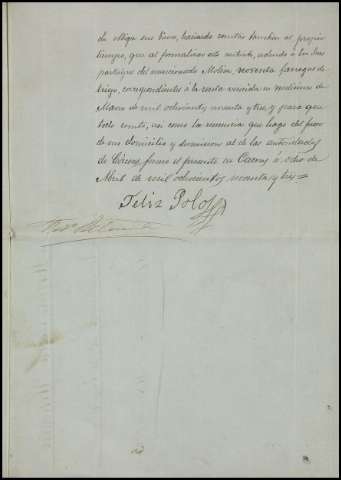 de obliga sus bienes, haciendo constar tambien al propio
tiempo, que al formalizar este contrato, adeuda á los Sres
participes del mencionado Molino, noventa fanegas de
trigo, correspondientes á la renta vencida en mediados de
Marzo de mil ochocientos noventa y tres, y para que
todo conste, asi como la renuncia que hago del fuero
de mi domicilio y sumision al de las autoridades
de Cáceres, firmo el presente en Cáceres á ocho de
Abril de mil ochocientos noventa y tres=
Feliz Polo